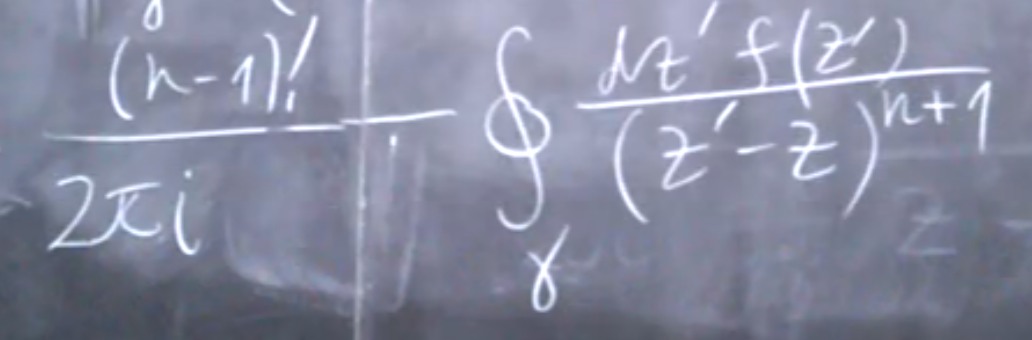 \frac{(n-1)!}{2\pi i} \oint_{\gamma} \frac{dz' f(z')}{(z'-z)^{n+1}}